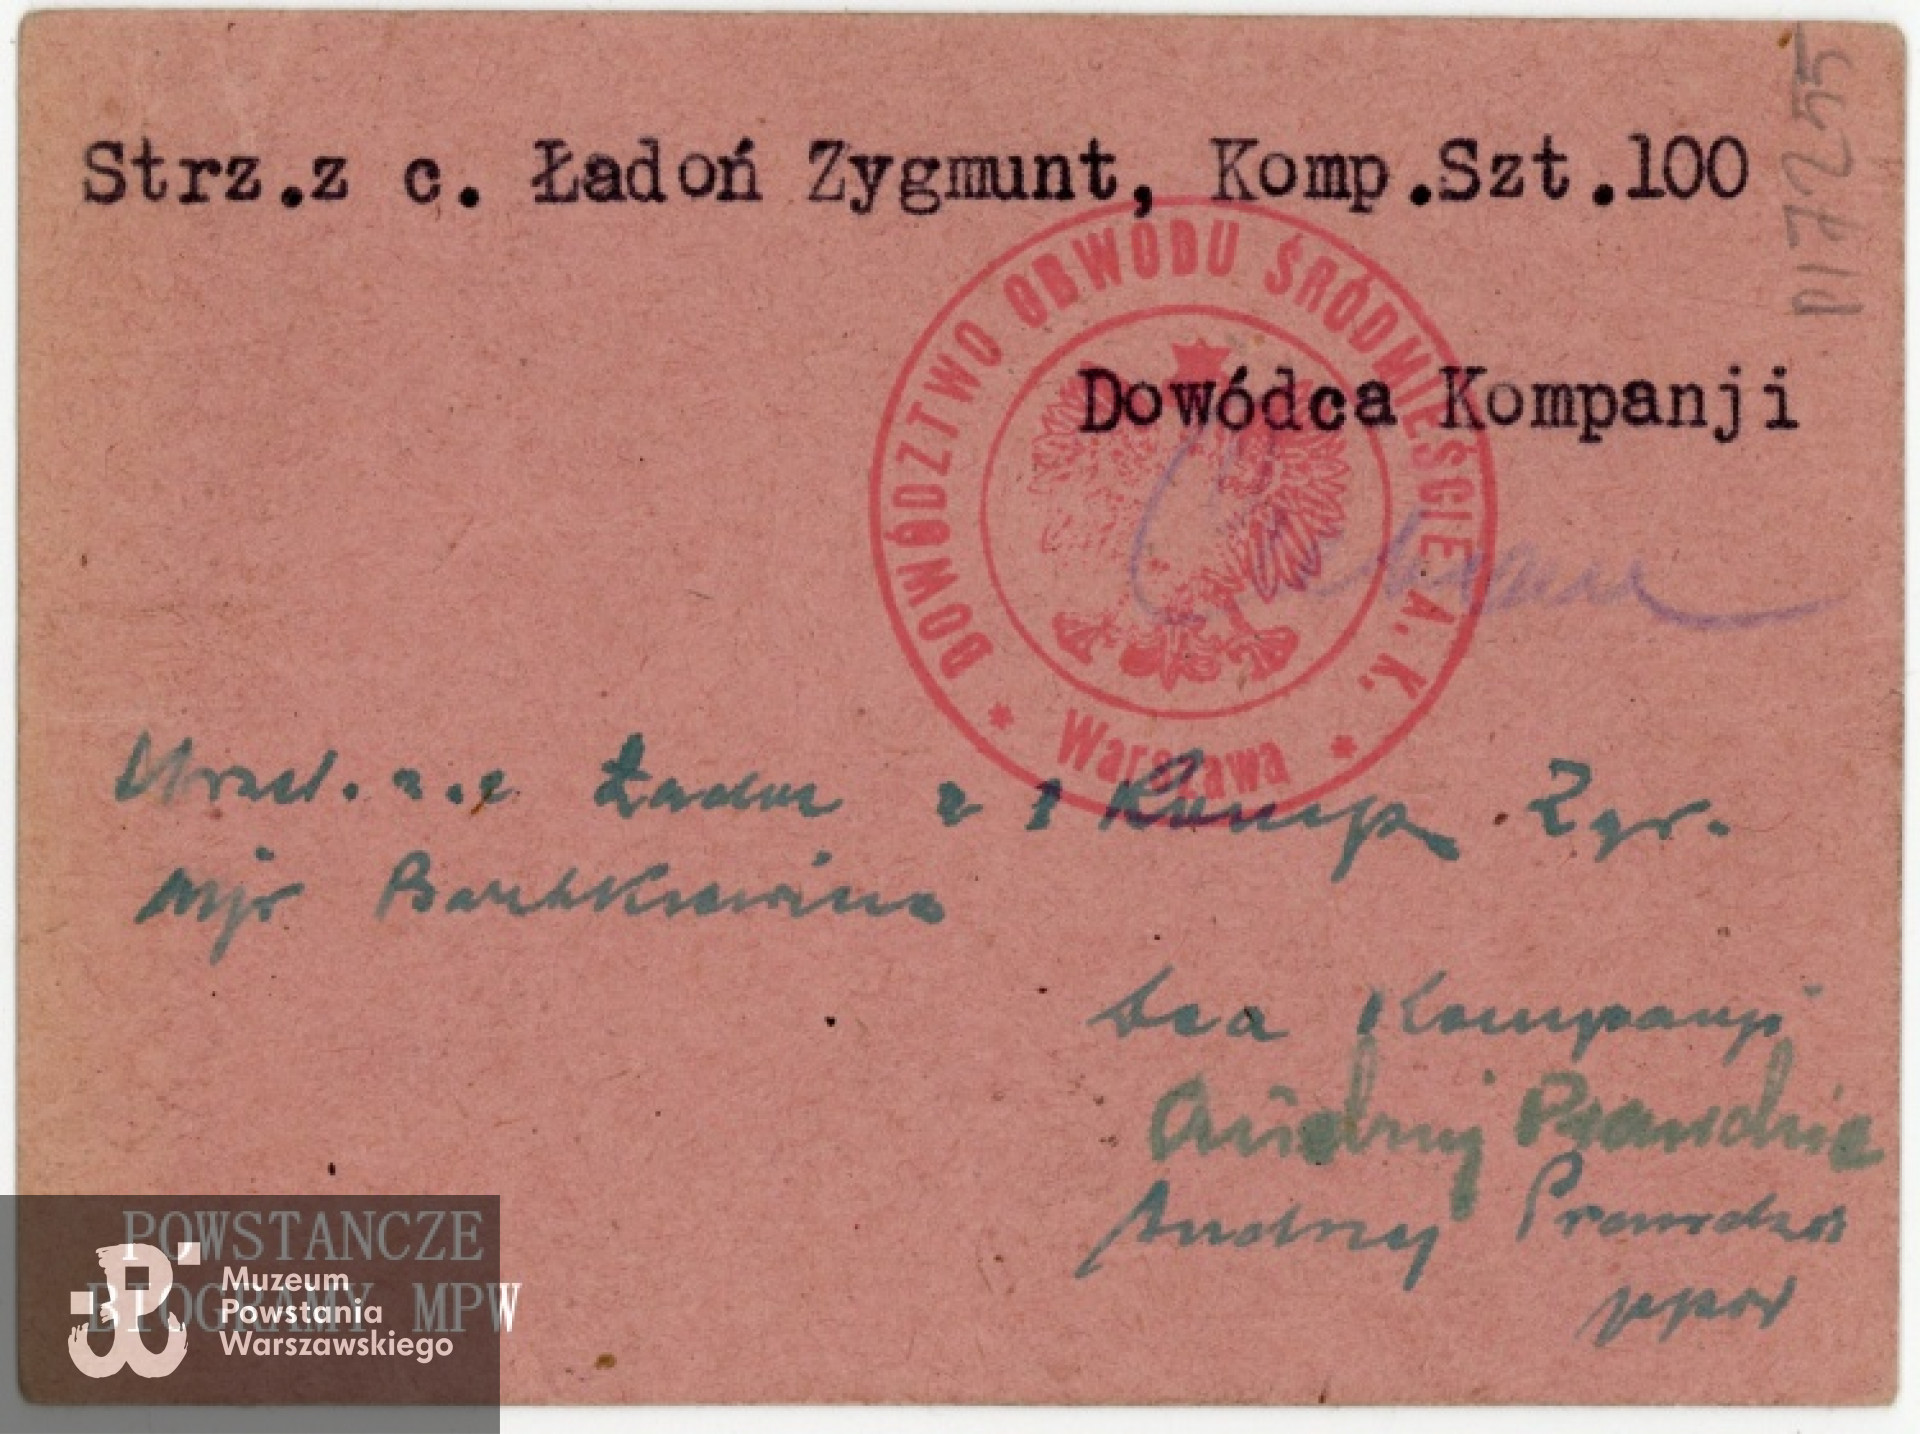 Strz.z c. Ładoń Zygmunt, Komp.Szt.100
P/7255
DOWÓDZTWO OBWODU ŚRÓDMIEŚCIE A.K.
* Warszawa *
Dowódca Kompanji
Ładoń z 1 Komp. Zgr.
mjr Bartkiewicza
Dca Kompanji
Andrzej Prawdzic
Andrzej Prawdzic
ppor
POWSTAŃCZE
BIOGRAMY MPW
Muzeum
Powstania
Warszawskiego